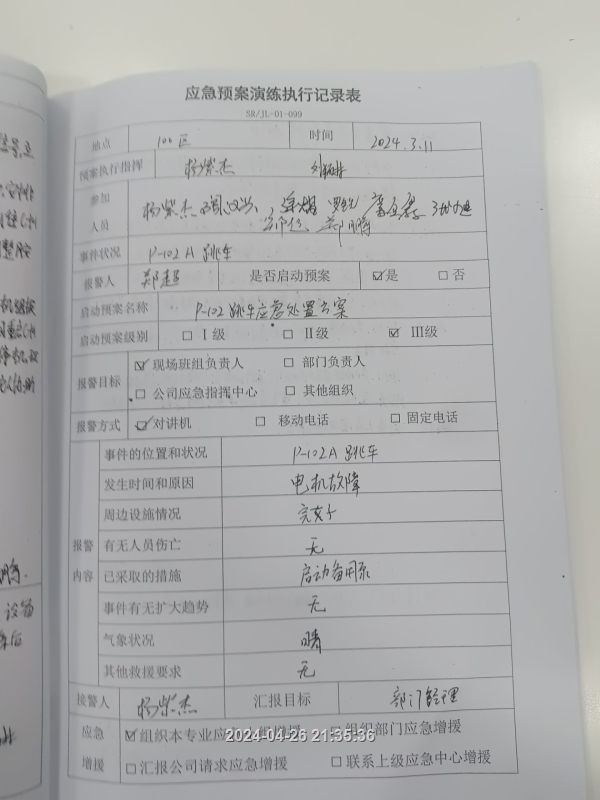 应急预案演练执行记录表
SR/JL-01-099
地点 100区 时间 2024.3.11
预案执行指挥 杨柴杰
参加人员 杨柴杰
郑超
事件状况 P-102A 跳车
报警人 郑超 是否启动预案 ☑是 □否
启动预案名称 P-102跳车应急处置方案
启动预案级别 □ Ⅰ级 □ Ⅱ级 ☑ Ⅲ级
报警目标 ☑现场班组负责人 □ 部门负责人
□ 公司应急指挥中心 □ 其他组织
报警方式 ☑对讲机 □ 移动电话 □ 固定电话
报警内容 事件的位置和状况 P-102A 跳车
发生时间和原因 电机故障
周边设施情况 完好
有无人员伤亡 无
已采取的措施 启动备用泵
事件有无扩大趋势 无
气象状况 晴
其他救援要求 无
接警人 杨柴杰 汇报目标 部门经理
应急增援 ☑组织本专业应急增援 □组织部门应急增援
□汇报公司请求应急增援 □联系上级应急中心增援
2024-04-26 21:35:36